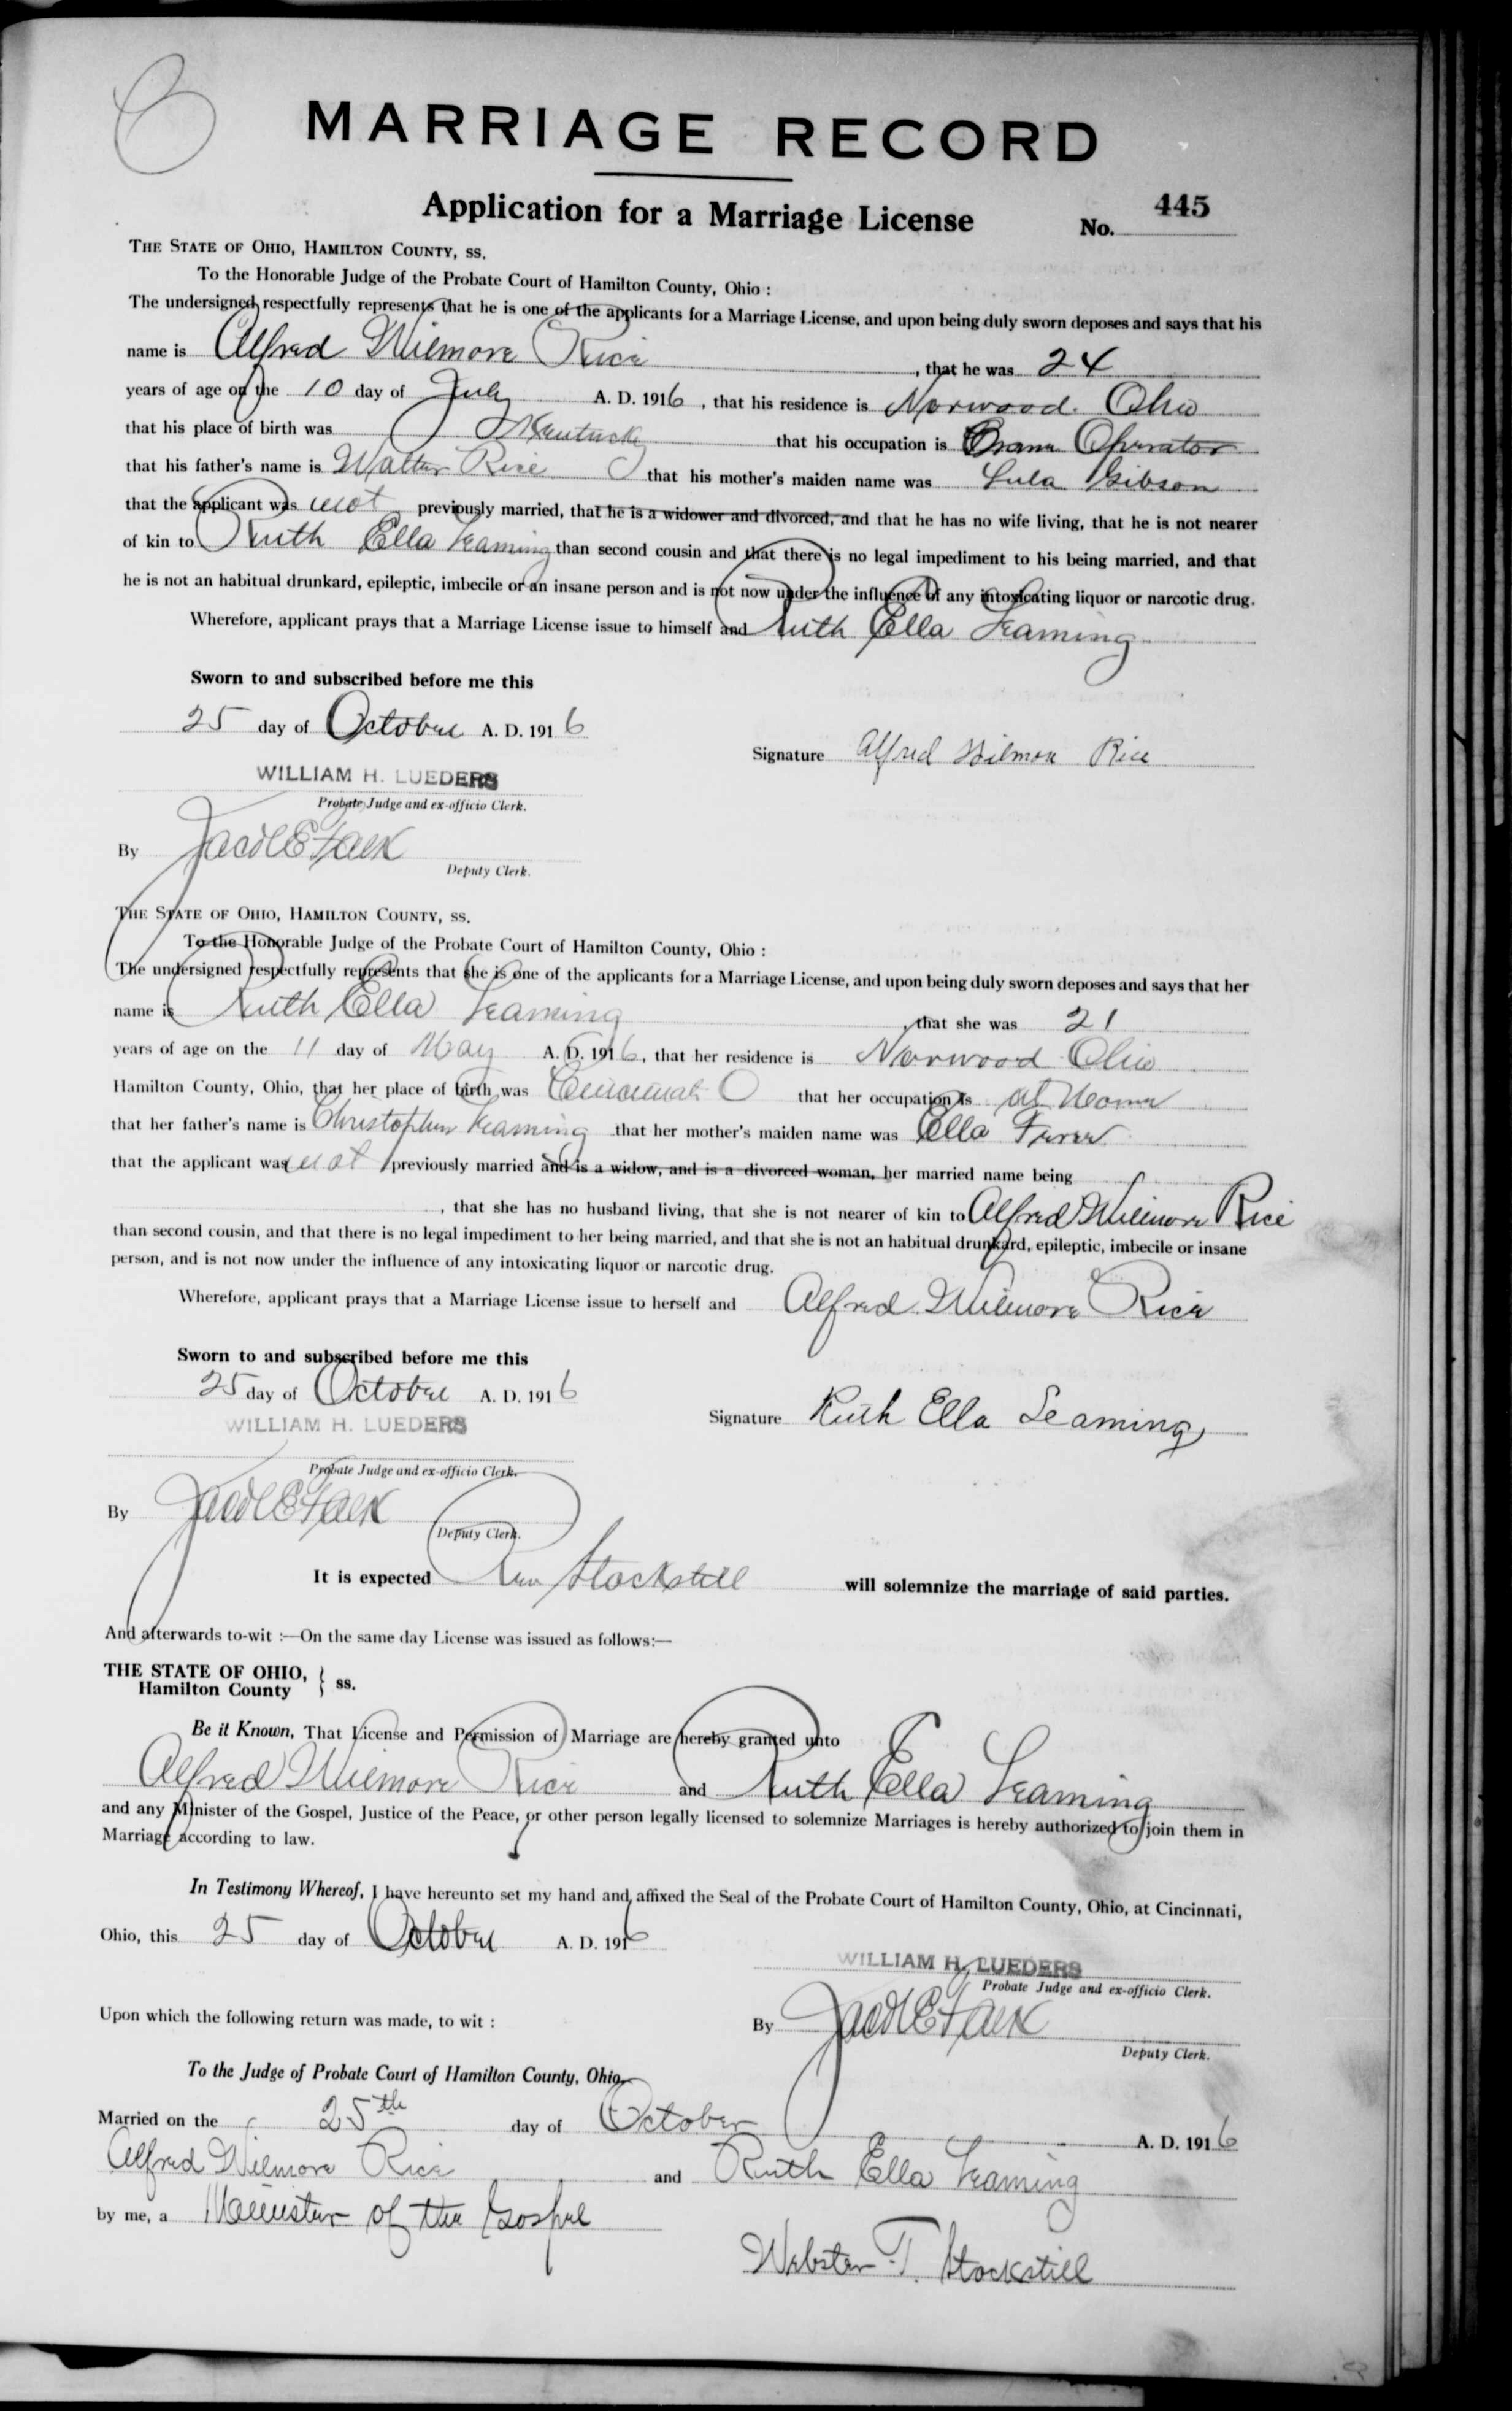 MARRIAGE RECORD
Application for a Marriage License
No. 445
THE STATE OF OHIO, HAMILTON COUNTY, SS.
To the Honorable Judge of the Probate Court of Hamilton County, Ohio :
The undersigned respectfully represents that he is one of the applicants for a Marriage License, and upon being duly sworn deposes and says that his
name is Alfred Wilmore Rice , that he was 24
years of age on the 10 day of July A. D. 1916 , that his residence is Norwood. Ohio
that his place of birth was Kentucky that his occupation is Operator
that his father's name is Walter Rice that his mother's maiden name was Lula Gibson
that the applicant was not previously married, that he is a widower and divorced, and that he has no wife living, that he is not nearer
of kin to Ruth Ella Leaming than second cousin and that there is no legal impediment to his being married, and that
he is not an habitual drunkard, epileptic, imbecile or an insane person and is not now under the influence of any intoxicating liquor or narcotic drug.
Wherefore, applicant prays that a Marriage License issue to himself and Ruth Ella Leaming
Sworn to and subscribed before me this
25 day of October A. D. 1916
Signature Alfred Wilmore Rice
WILLIAM H. LUEDERS
Probate Judge and ex-officio Clerk.
By Jacob E Falk
Deputy Clerk.
THE STATE OF OHIO, HAMILTON COUNTY, SS.
To the Honorable Judge of the Probate Court of Hamilton County, Ohio :
The undersigned respectfully represents that she is one of the applicants for a Marriage License, and upon being duly sworn deposes and says that her
name is Ruth Ella Leaming , that she was 21
years of age on the 11 day of May A. D. 1916, that her residence is Norwood Ohio
Hamilton County, Ohio, that her place of birth was Cincinnati O that her occupation is at Home
that her father's name is Christopher Leaming that her mother's maiden name was Ella
that the applicant was not previously married and is a widow, and is a divorced woman, her married name being
, that she has no husband living, that she is not nearer of kin to Alfred Wilmore Rice
than second cousin, and that there is no legal impediment to her being married, and that she is not an habitual drunkard, epileptic, imbecile or insane
person, and is not now under the influence of any intoxicating liquor or narcotic drug.
Wherefore, applicant prays that a Marriage License issue to herself and Alfred Wilmore Rice
Sworn to and subscribed before me this
25 day of October A. D. 1916
WILLIAM H. LUEDERS
Signature Ruth Ella Leaming
Probate Judge and ex-officio Clerk.
By Jacob E Falk
Deputy Clerk.
It is expected Rev Stockstill will solemnize the marriage of said parties.
And afterwards to-wit :—On the same day License was issued as follows:—
THE STATE OF OHIO, } ss.
Hamilton County
Be it Known, That License and Permission of Marriage are hereby granted unto
Alfred Wilmore Rice and Ruth Ella Leaming
and any Minister of the Gospel, Justice of the Peace, or other person legally licensed to solemnize Marriages is hereby authorized to join them in
Marriage according to law.
In Testimony Whereof, I have hereunto set my hand and affixed the Seal of the Probate Court of Hamilton County, Ohio, at Cincinnati,
Ohio, this 25 day of October A. D. 1916
WILLIAM H. LUEDERS
Probate Judge and ex-officio Clerk.
Upon which the following return was made, to wit :
By Jacob E Falk
Deputy Clerk.
To the Judge of Probate Court of Hamilton County, Ohio
Married on the 25th day of October A. D. 1916
Alfred Wilmore Rice and Ruth Ella Leaming
by me, a Minister of the Gospel
Webster T. Stockstill